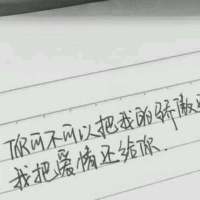 你可不可以把我的骄傲
我把爱情还给你.